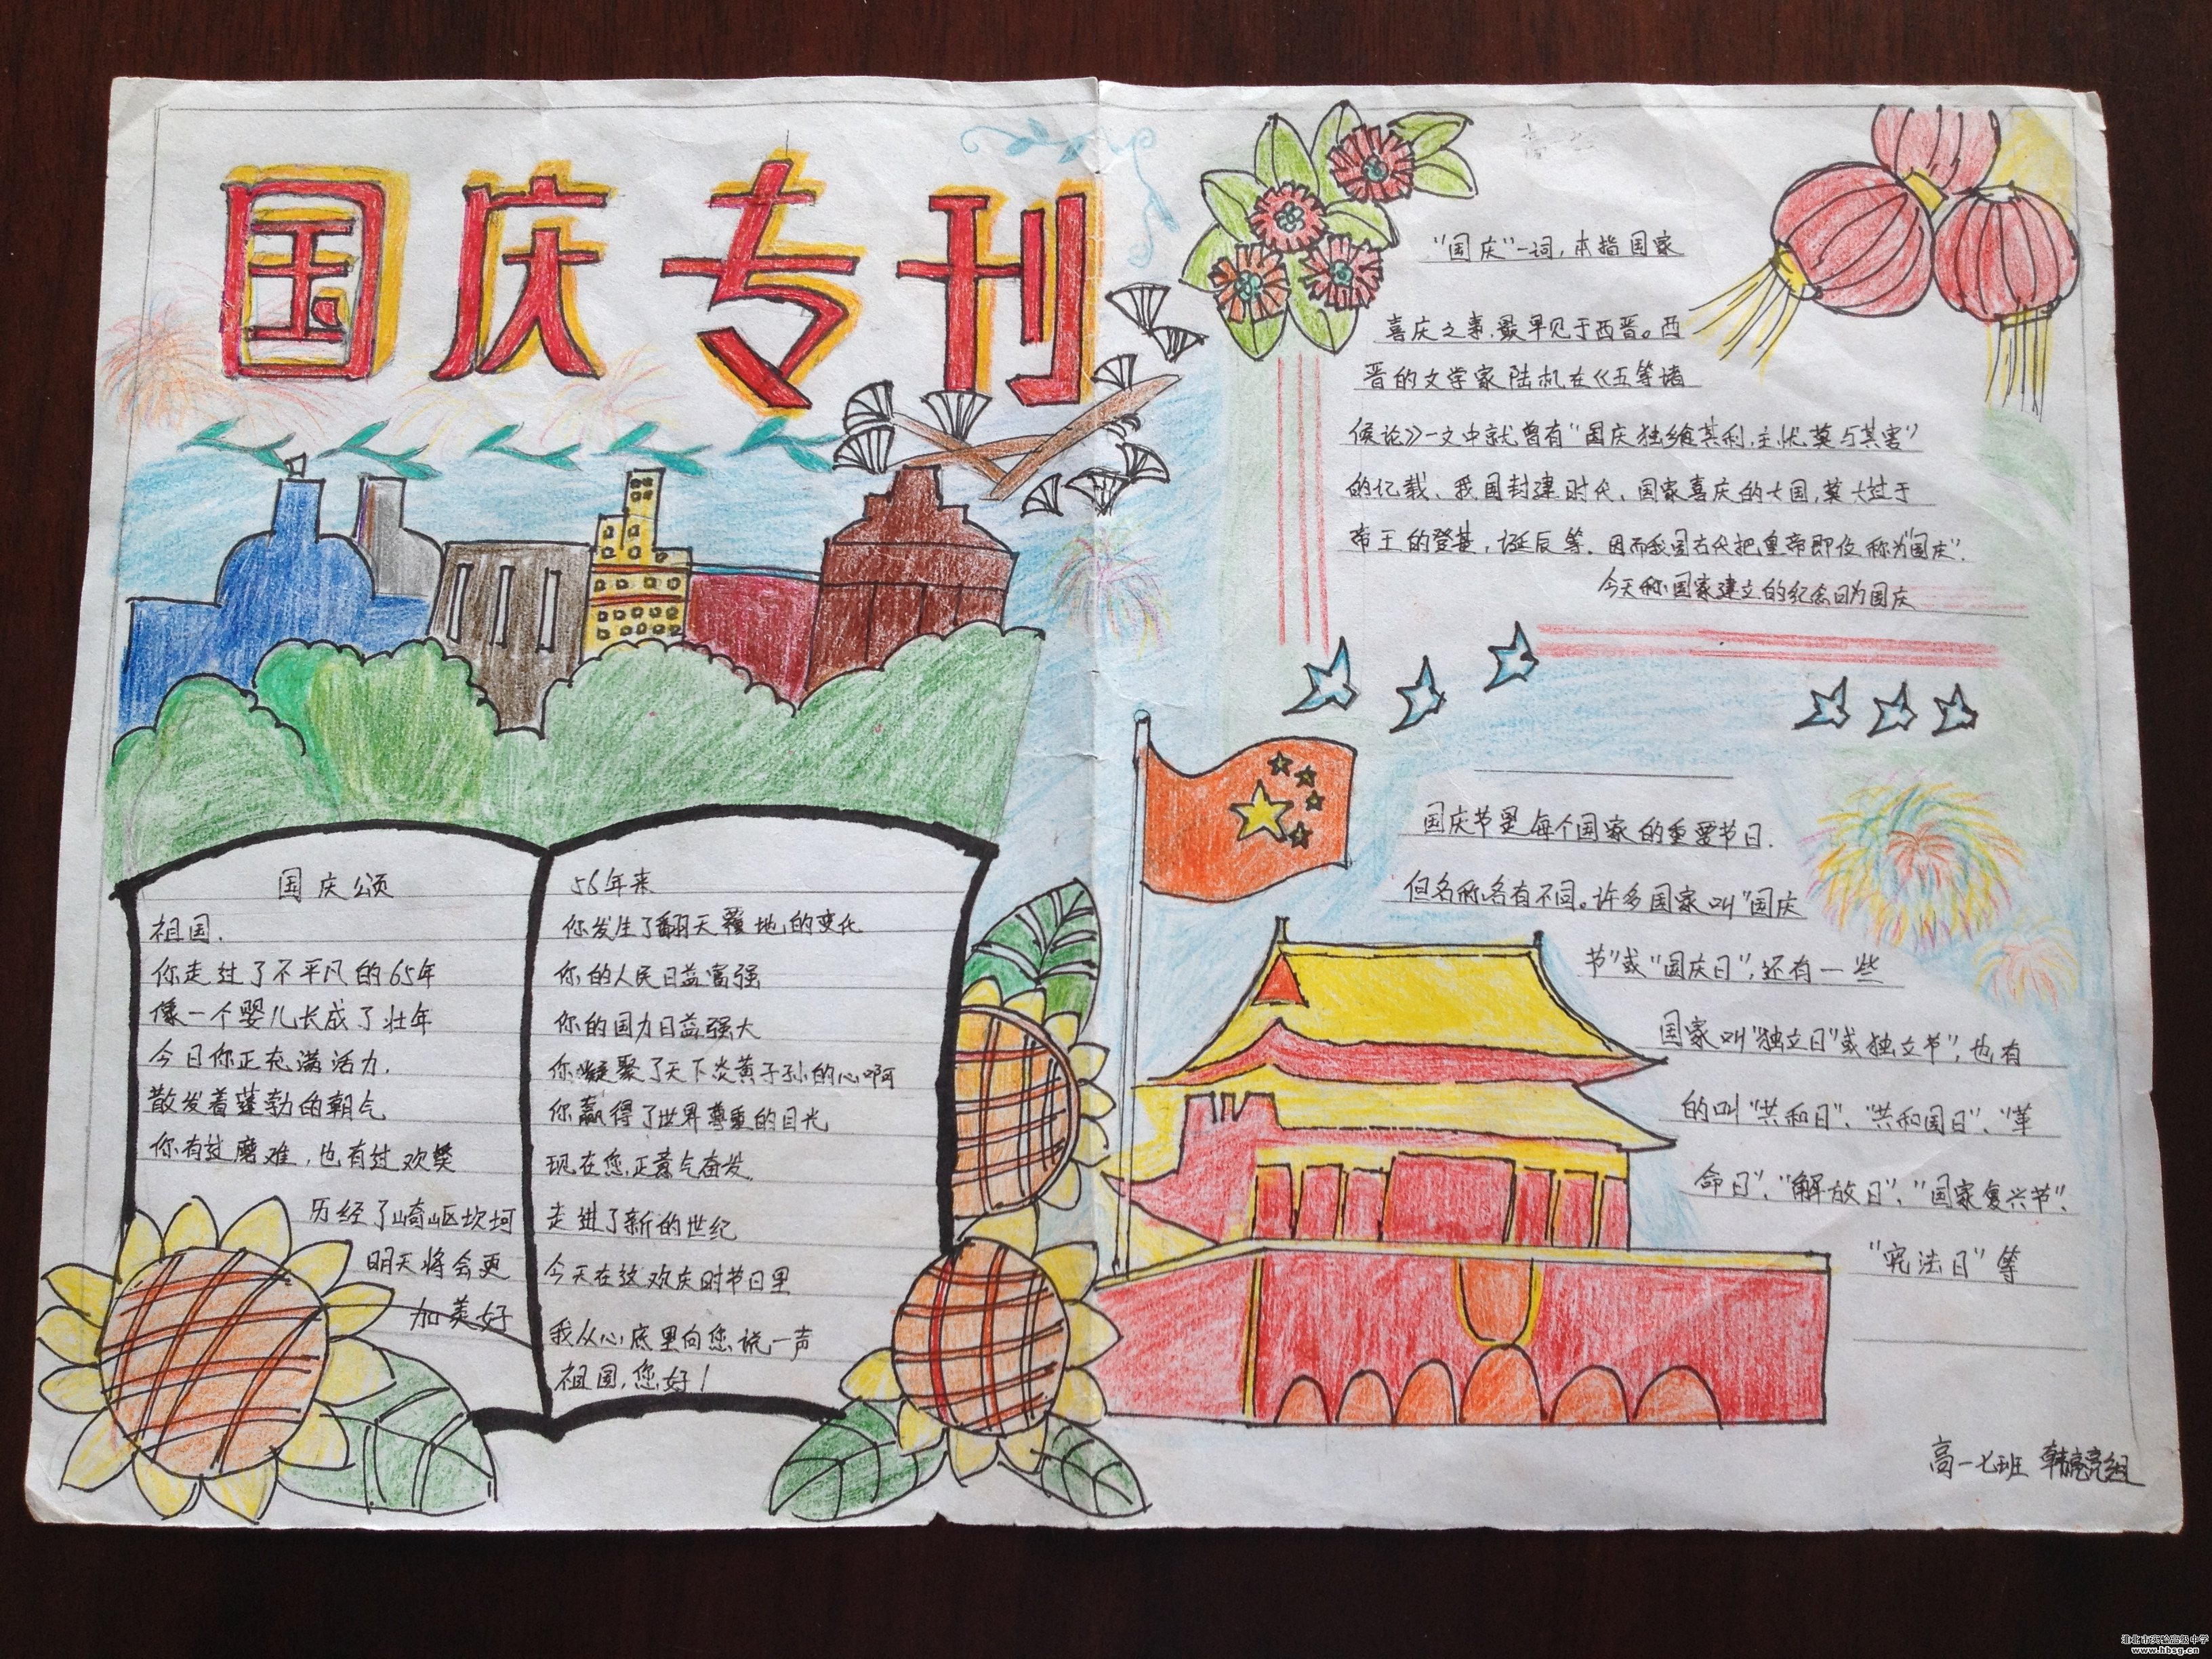 国庆专刊
国庆颂
祖国，
你走过了不平凡的65年
像一个婴儿长成了壮年
今日你正充满活力，
散发着蓬勃的朝气
你有过磨难，也有过欢樊
历经了崎岖坎坷
明天将会更
加美好
56年来
你发生了翻天覆地的变化
你的人民日益富强
你的国力日益强大
你凝聚了天下炎黄子孙的心啊
你赢得了世界尊重的目光
现在您正意气奋发
走进了新的世纪
今天在这欢庆时节日里
我从心底里向您说一声
祖国，您好！
“国庆”一词，本指国家
喜庆之事，最早见于西晋。西
晋的文学家陆机在《五等诸
侯论》一文中就曾有“国庆独飨其利，主忧莫与其害”
的亿载、我国封建时代、国家喜庆的大国，莫大过于
帝王的登基，诞辰等。因而我国古代把皇帝即位称为“国庆”.
今天称国家建立的纪念日为国庆
国庆节是每个国家的重要节日.
但名称各有不同。许多国家叫“国庆
节”或“国庆日”，还有一些
国家叫“独立日”或独立节”，也有
的叫“共和日”、“共和国日”、“革
命日”、“解放日”、“国家复兴节”、
“宪法日”等
高一七班 韩亮亮组
淮北市实验高级中学
www.hbsg.cn